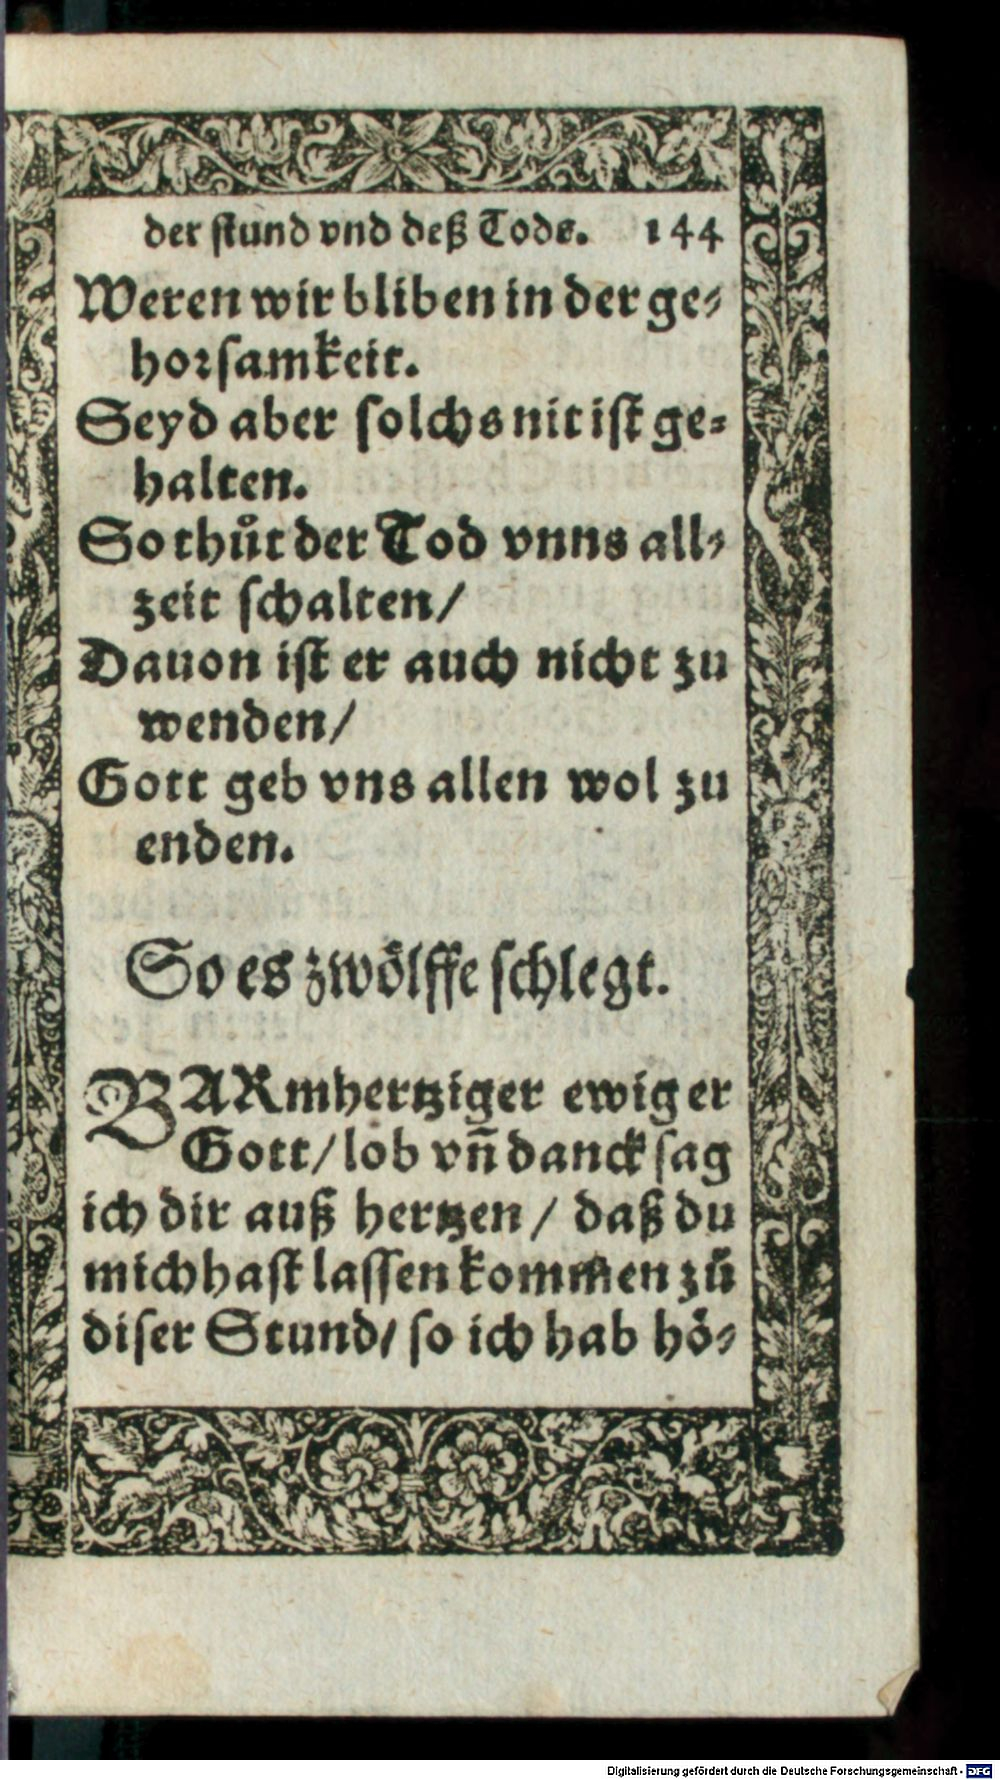 der stund vnd deß Tods. 144
Weren wir bliben in der ge-
horsamkeit.
Seyd aber solchs nit ist ge-
halten.
So thůt der Tod vnns all-
zeit schalten/
Dauon ist er auch nicht zu
wenden/
Gott geb vns allen wol zu
enden.
So es zwölffe schlegt.
BARmhertziger ewiger
Gott/ lob vñ danck sag
ich dir auß hertzen / daß du
mich hast lassen kommen zů
diser Stund/ so ich hab hö-
Digitalisierung gefördert durch die Deutsche Forschungsgemeinschaft - DFG